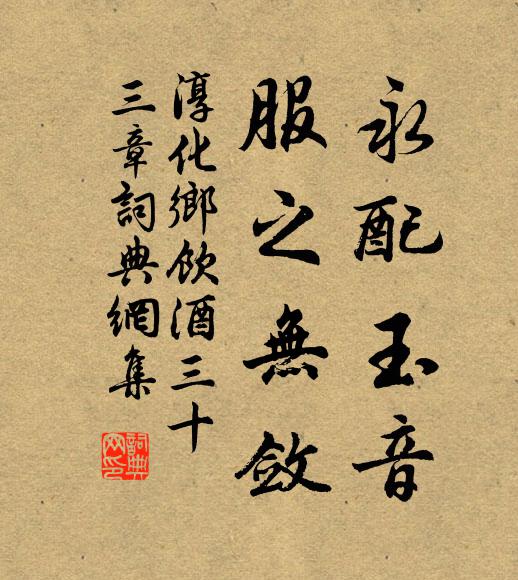 永配玉音
服之無斂
淳化鄉飲酒三十
三章詞典網集
詞典
网印